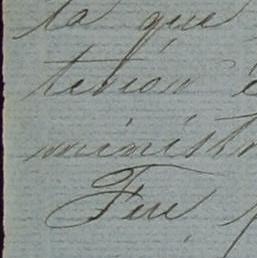 la que
tension
ministr
Fue